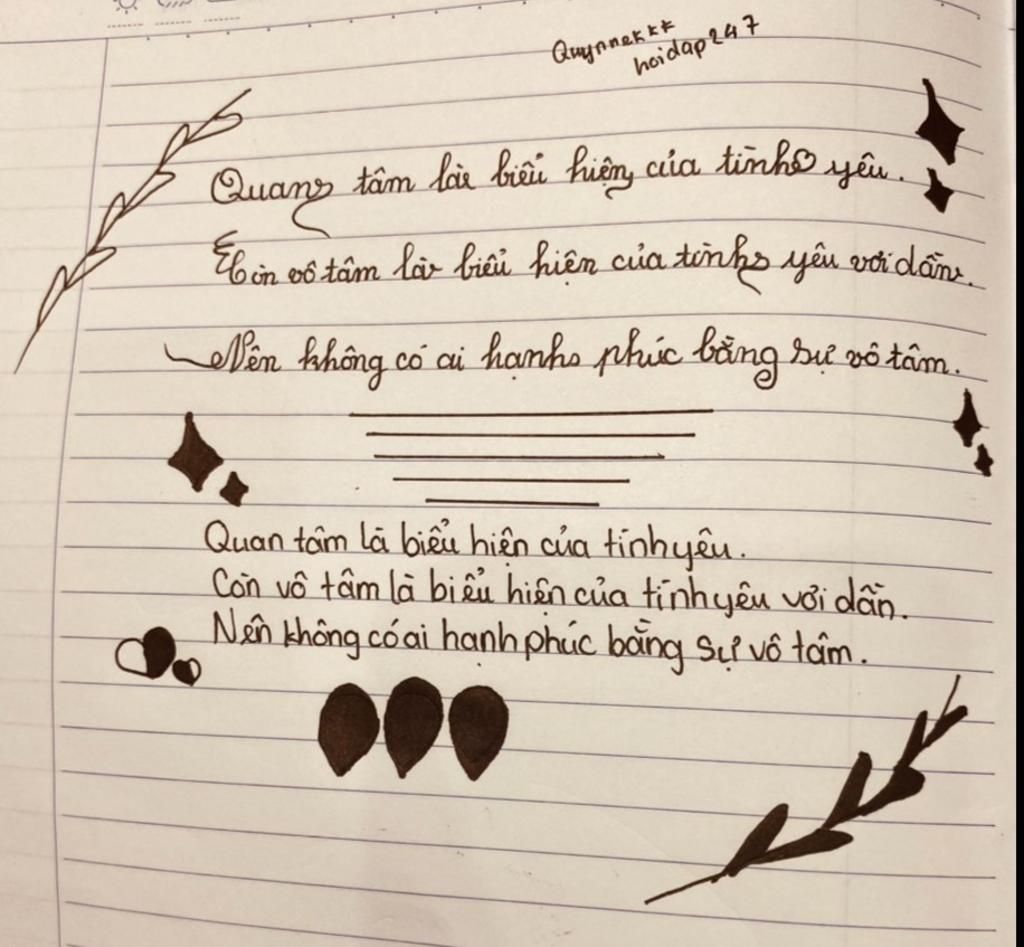 Quynnekkk
hoidap247
Quan tâm là biểu hiện của tình yêu.
Còn vô tâm là biểu hiện của tình yêu với dần.
Nên không có ai hạnh phúc bằng sự vô tâm.
Quan tâm là biểu hiện của tình yêu.
Còn vô tâm là biểu hiện của tình yêu với dần.
Nên không có ai hạnh phúc bằng sự vô tâm.